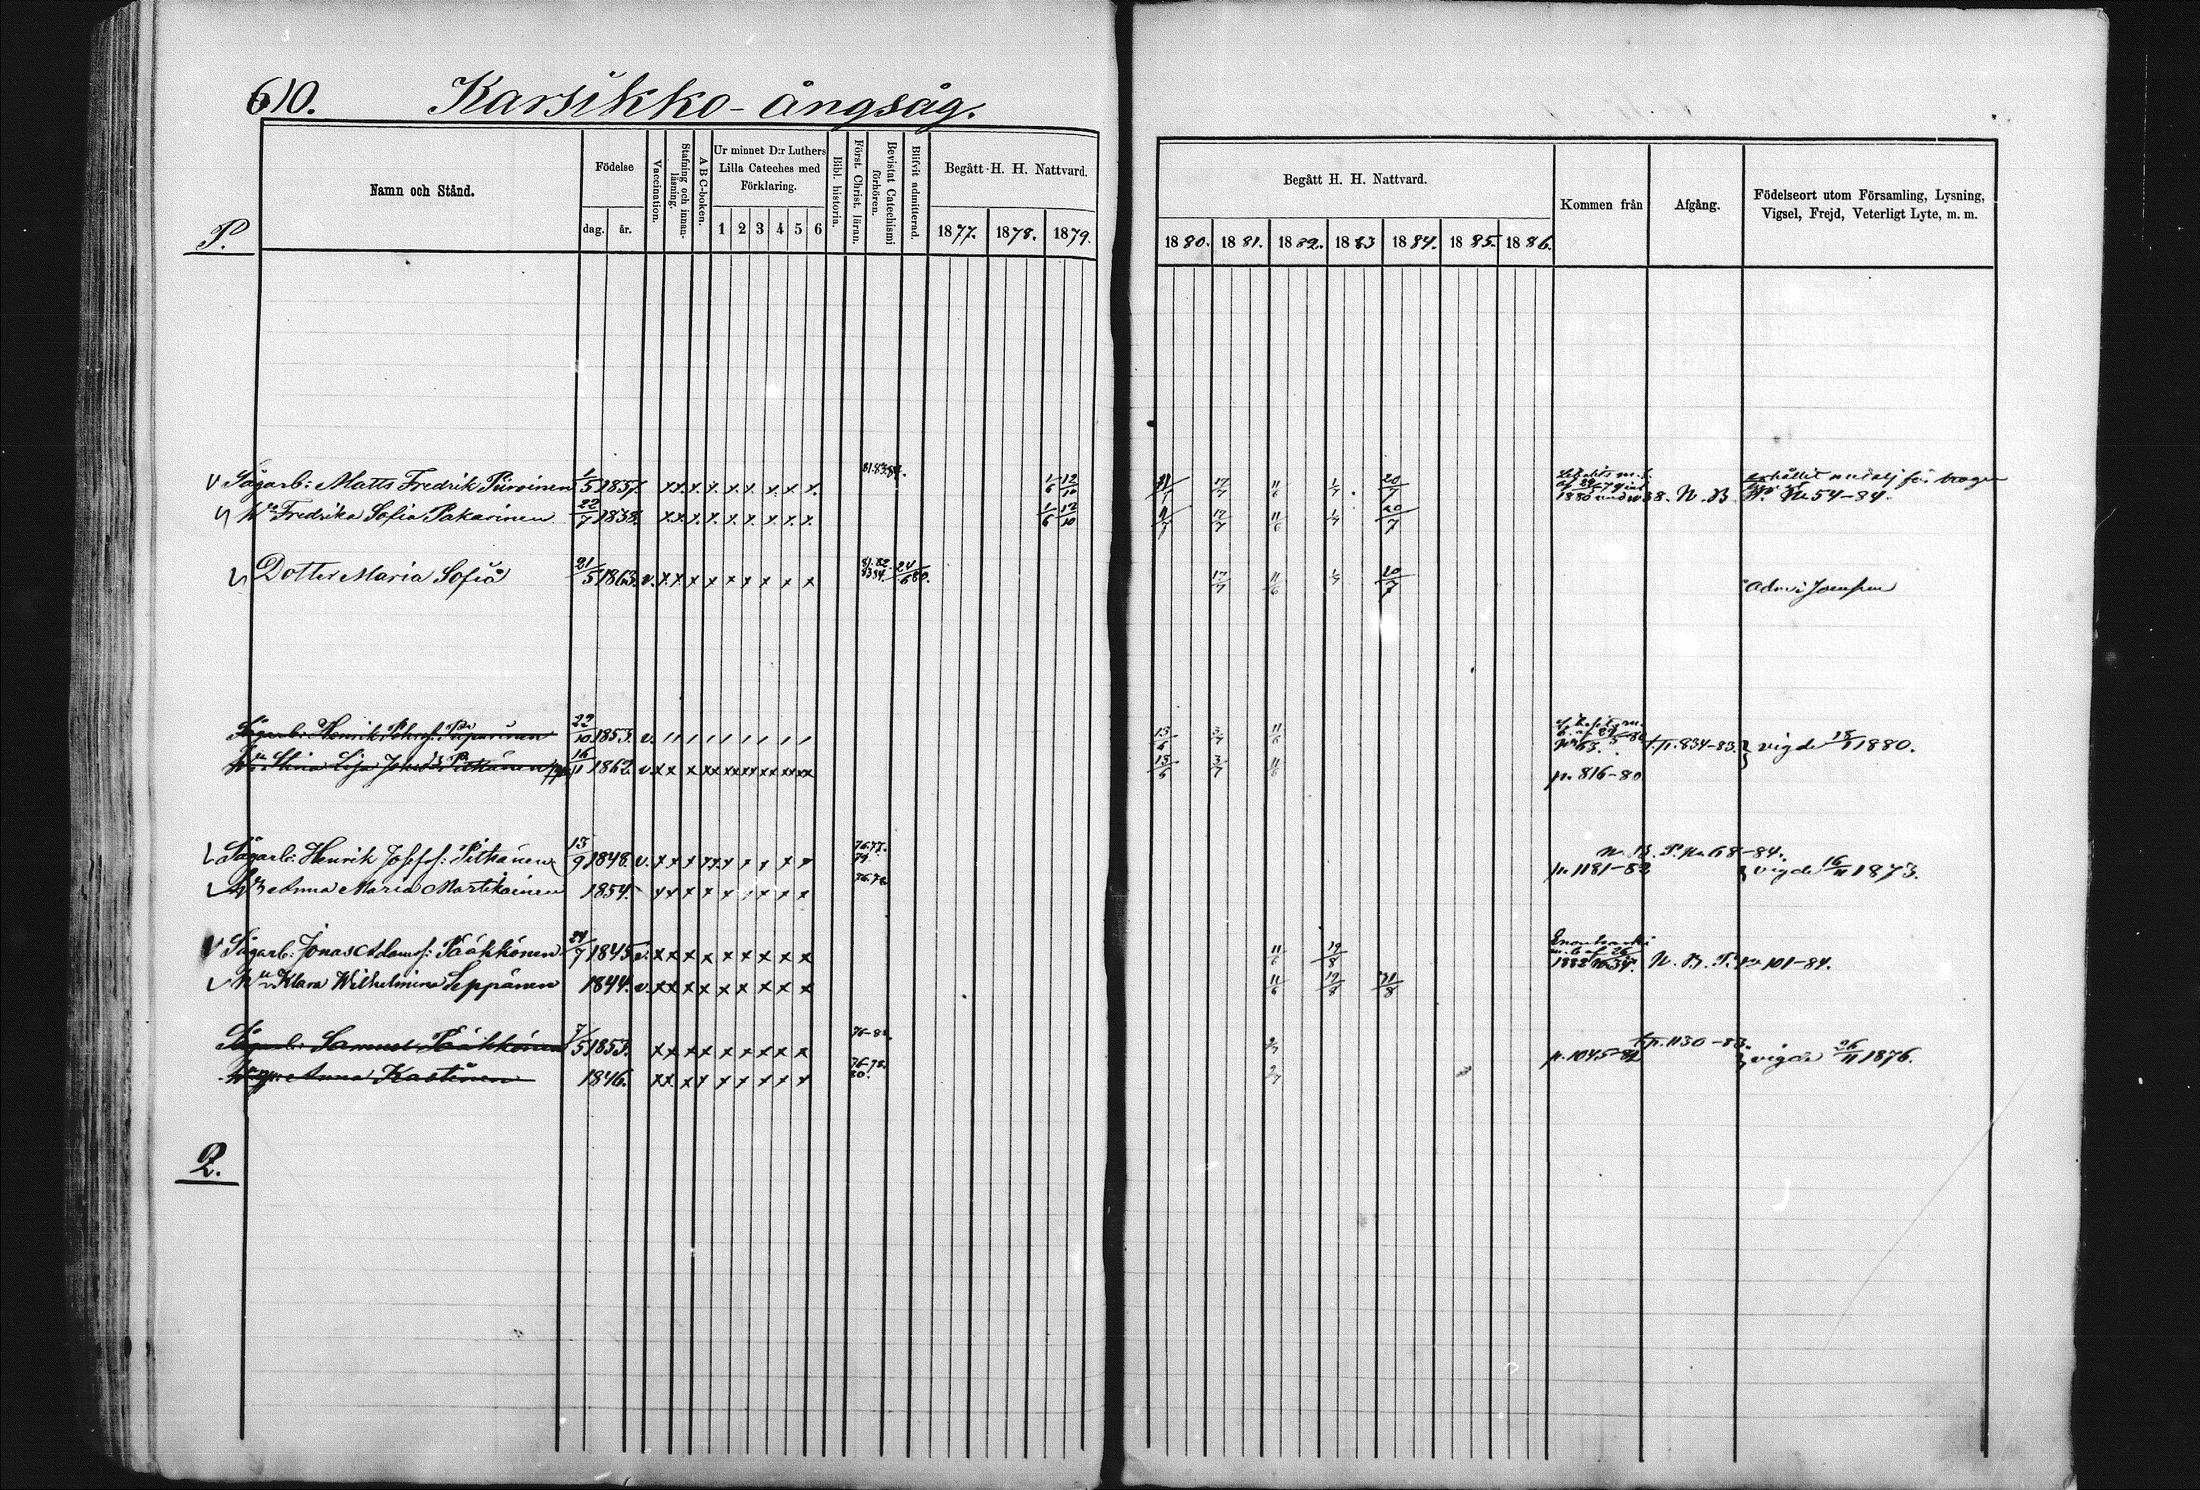 610. Karsikko-ångsåg.
P.
Namn och Stånd.
Födelse
dag. år.
Vaccination.
Stafning och innanläsning.
A B C-boken.
Ur minnet D:r Luthers
Lilla Cateches med
Förklaring.
1 2 3 4 5 6
Bibl. historia.
Först. Christ. läran.
Bevistat Catechismi förhören.
Blifvit admitterad.
Begått H. H. Nattvard.
1877. 1878. 1879.
Begått H. H. Nattvard.
1880. 1881. 1882. 1883 1884. 1885. 1886.
Kommen från
Afgång.
Födelseort utom Församling, Lysning,
Vigsel, Frejd, Veterligt Lyte, m. m.
Sågarb: Matts Fredrik Piirainen 1/5 1837. x x. x. x. x. x. x. x. x. 81.83.84. 1/6 12/10 17/7 11/6 1/7 20/7 N. B. No 54-84.
Hu Fredrika Sofia Pakarinen 22/7 1838. x x. x. x. x. x. x. x. x. 1/6 12/10 17/7 11/6 1/7 20/7
Dotter Maria Sofia 21/5 1863. v. x x x x x x x x x 81.82. 83 84. 24/6 80. 17/7 11/6 1/7 20/7 Adm i Joensuu
Sågarb: Henrik 22/10 1853. v. 13/6 3/7 11/6 t.p. 834-83. } vigde 18/1 1880.
Hu Stina Lisa Pitkänen 16/11 1862. v. 13/6 3/7 11/6 p. 816-80
Sågarb: Henrik Josefsf: Pitkänen 13/9 1848. v. x x x x x x x x x 76 77. 79. p. 1181-82 N. B. P. No 68-84. } vigde 16/11 1873.
Hu Anna Maria Martikainen 1854. x x x x x x x x x 76 78
Sågarb: Jonas Adamsf: Pääkkönen 24/7 1845 v. x x x x x x x x x 11/6 19/8 N. B. P. No 101-84.
Hu Klara Wilhelmina Seppänen 1844. v. x x x x x x x x x 11/6 19/8 31/8
Sågarb: Samuel Pääkkönen 7/5 1853. x x x x x x x x x 2/7 p. 1045-82 t.p. 1130-83. } vigde 26/11 1876.
Hu Anna Kastinen 1846. x x x x x x x x x 76-78. 80. 2/7
Q.